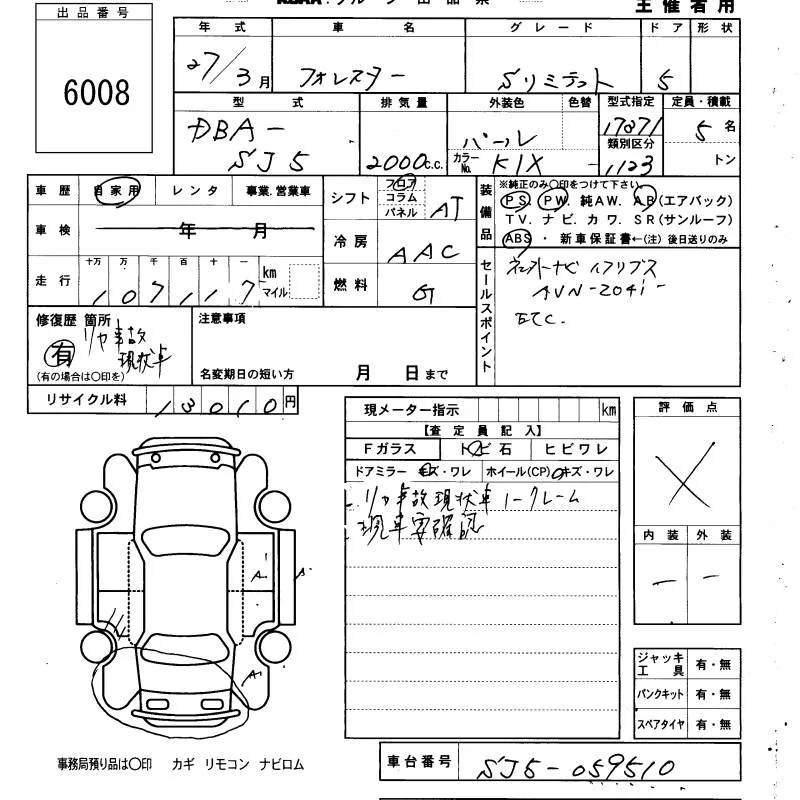 出品番号
6008
主催者用
年式 車名 グレード ドア 形状
27/3月 フォレスター Sリミテット 5
型式 排気量 外装色 色替 型式指定 定員・積載
DBA-
SJ5 2000c.c. パール 17871 5名
カラーNo. K1X 類別区分 1123 トン
車歴 自家用 レンタ 事業.営業車
車検 年 月
走行 十万 万 千 百 十 一
107117 km マイル
シフト フロア コラム パネル AT
冷房 AAC
燃料 G
装備品
※純正のみ〇印をつけて下さい。
PS. PW. 純AW. AB(エアバック)
TV. ナビ. カワ. SR(サンルーフ)
ABS ・ 新車保証書←(注) 後日送りのみ
セールスポイント
AVN-Z04i
ETC.
修復歴 箇所
リヤ事故
現状車
有
(有の場合は〇印を)
注意事項
名変期日の短い方 月 日まで
リサイクル料 13010円
現メーター指示 km
【査定員記入】
Fガラス トビ石 ヒビワレ
ドアミラー キズ・ワレ ホイール(CP) キズ・ワレ
リヤ事故現状車 ノークレーム
現車要確認
評価点
内装 外装
- -
A
A
A
ジャッキ工具 有・無
パンクキット 有・無
スペアタイヤ 有・無
事務局預り品は〇印 カギ リモコン ナビロム
車台番号 SJ5-059510